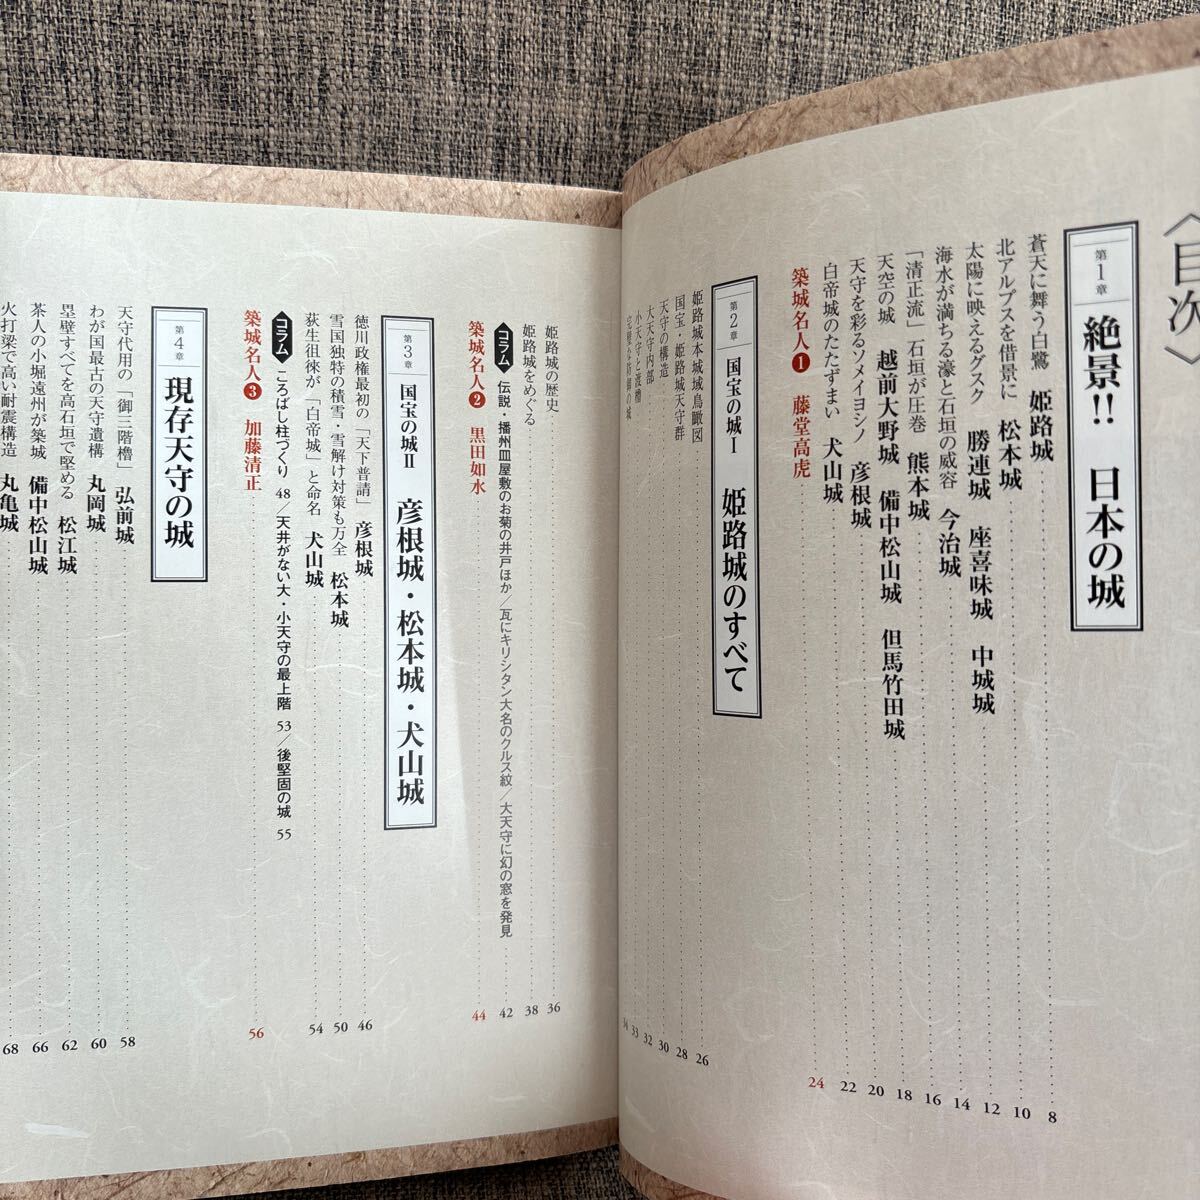 〈目次〉
第1章 絶景!! 日本の城
蒼天に舞う白鷺 姫路城 8
北アルプスを借景に 松本城 10
太陽に映えるグスク 勝連城 座喜味城 中城城 12
海水が満ちる濠と石垣の威容 今治城 14
「清正流」石垣が圧巻 熊本城 16
天空の城 越前大野城 備中松山城 但馬竹田城 18
天守を彩るソメイヨシノ 彦根城 20
白帝城のたたずまい 犬山城 22
築城名人1 藤堂高虎 24
第2章 国宝の城Ⅰ 姫路城のすべて
姫路城本城域鳥瞰図 26
国宝・姫路城天守群 28
天守の構造 30
大天守内部 32
小天守と渡櫓 33
完璧な防御の城 34
姫路城の歴史 36
姫路城をめぐる 38
コラム 伝説・播州皿屋敷のお菊の井戸ほか/瓦にキリシタン大名のクルス紋/大天守に幻の窓を発見 42
築城名人2 黒田如水 44
第3章 国宝の城Ⅱ 彦根城・松本城・犬山城
徳川政権最初の「天下普請」 彦根城 46
雪国独特の積雪・雪解け対策も万全 松本城 50
荻生徂徠が「白帝城」と命名 犬山城 54
コラム ころばし柱づくり 48/天井がない大・小天守の最上階 53/後堅固の城 55
築城名人3 加藤清正 56
第4章 現存天守の城
天守代用の「御三階櫓」 弘前城 58
わが国最古の天守遺構 丸岡城 60
塁壁すべてを高石垣で堅める 松江城 62
茶人の小堀遠州が築城 備中松山城 66
火打梁で高い耐震構造 丸亀城 68